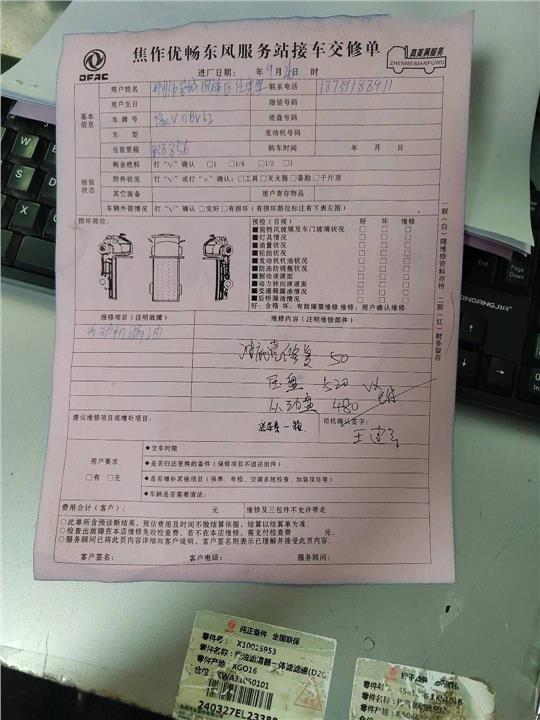 焦作优畅东风服务站接车交修单
DFAC
真美满服务
ZHENMEIMANFUWU
进厂日期： 年 9 月 日 时
基本信息
用户姓名
联系电话
用户生日 微信号码
车牌号 底盘号
车型 发动机号码
当前里程 购车时间 年 月 日
修前状态
剩余燃料 打“V”确认 □1 □1/4 □1/2 □1
附件状况 打“V”或打“×”确认：□工具□灭火器□备胎□千斤顶
其它装备 用户寄存物品
车辆外部情况 打“V”确认 □完好 □有损坏（有损坏部位标注有下表左图）
损坏部位： 预检（目视） 好 坏 维修
■前档风玻璃及车门玻璃状况 □ □ □
■灯具情况 □ □ □
■油量状况 □ □ □
■轮胎状况 □ □ □
■发动机机油状况 □ □ □
■防冻防锈瓶状况 □ □ □
■制动液液面 □ □ □
■动力转向液液面 □ □ □
■变速箱漏油情况 □ □ □
■后桥漏油情况 □ □ □
好：合格 坏：有故障需维修 维修：用户确认维修
一联（白）随维修资料存档 二联（红）财务留存
报修项目（注明故障） 维修内容（注明维修部件）
发动机漏油
油底壳修复 50
压盘 520
从动盘 480
建议维修项目或增补项目：
司机确认签字：
用户要求
□有 □无
◆交车时限
◆是否归还更换的备件（保修项目不退还旧件）
◆是否增补其他项目（保养、年检、空调系统检查、加装项目等）
◆车辆是否需要清洁：
费用合计（客户）： 元 维修及三包件不允许带走
○此单所含预诊断结果，预估费用及时间不做结算依据，结算以结算单为准．
○检查出故障在本店维修免收检查费，若不在本店维修，需支付检查费 元．
○服务顾问已将此页内容详细向客户说明，客户签名则表示已理解并接受此页内容．
客户签名： 客户电话： 服务顾问：
纯正备件 全国联保
零件号： X10015953
零件产地： XG016
仓位：
Page Down